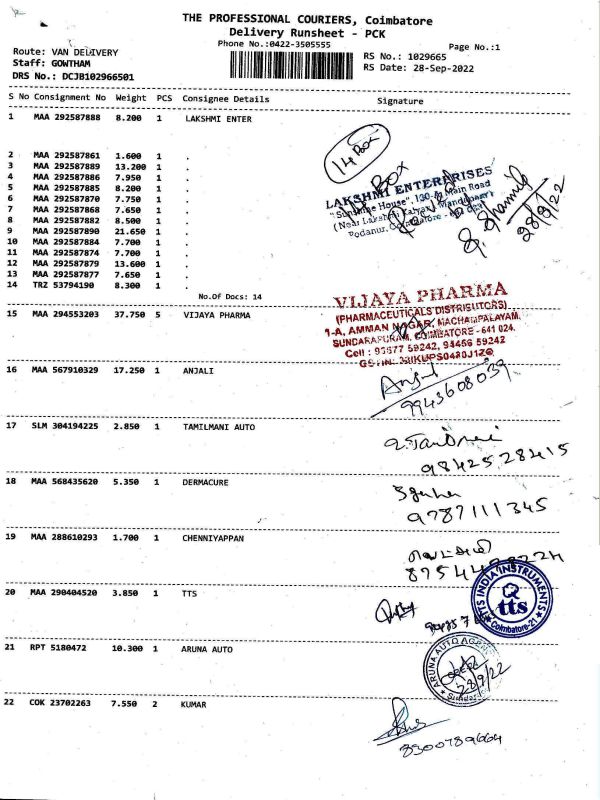 THE PROFESSIONAL COURIERS, Coimbatore
Delivery Runsheet - PCK
Phone No.:0422-3505555
Page No.:1
Route: VAN DELIVERY
Staff: GOWTHAM
DRS No.: DCJB102966501
RS No.: 1029665
RS Date: 28-Sep-2022
S No Consignment No Weight PCS Consignee Details Signature
1 MAA 292587888 8.200 1 LAKSHMI ENTER
14 Box
2 MAA 292587861 1.600 1 .
3 MAA 292587889 13.200 1 .
4 MAA 292587886 7.950 1 .
5 MAA 292587885 8.200 1 .
6 MAA 292587870 7.750 1 .
7 MAA 292587868 7.650 1 .
8 MAA 292587882 8.500 1 .
9 MAA 292587890 21.650 1 .
10 MAA 292587884 7.700 1 .
11 MAA 292587874 7.700 1 .
12 MAA 292587879 13.600 1 .
13 MAA 292587877 7.650 1 .
14 TRZ 53794190 8.300 1 .
No.Of Docs: 14
LAKSHMI ENTERPRISES
"Sunshine House" 130-A Main Road
28/9/22
15 MAA 294553203 37.750 5 VIJAYA PHARMA
VIJAYA PHARMA
(PHARMACEUTICALS DISTRIBUTORS)
1-A, AMMAN NAGAR, MACHAMPALAYAM,
SUNDARAPURAM, COIMBATORE - 641 024.
Cell : 93677 59242, 94456 59242
16 MAA 567910329 17.250 1 ANJALI
Anjali
9943608039
17 SLM 304194225 2.850 1 TAMILMANI AUTO
98425 28415
18 MAA 568435620 5.350 1 DERMACURE
9787111345
19 MAA 288610293 1.700 1 CHENNIYAPPAN
20 MAA 290404520 3.850 1 TTS
TTS INDIA INSTRUMENTS
tts
Coimbatore-21
21 RPT 5180472 10.300 1 ARUNA AUTO
ARUNA AUTO AGENCY
28/9/22
22 COK 23702263 7.550 2 KUMAR